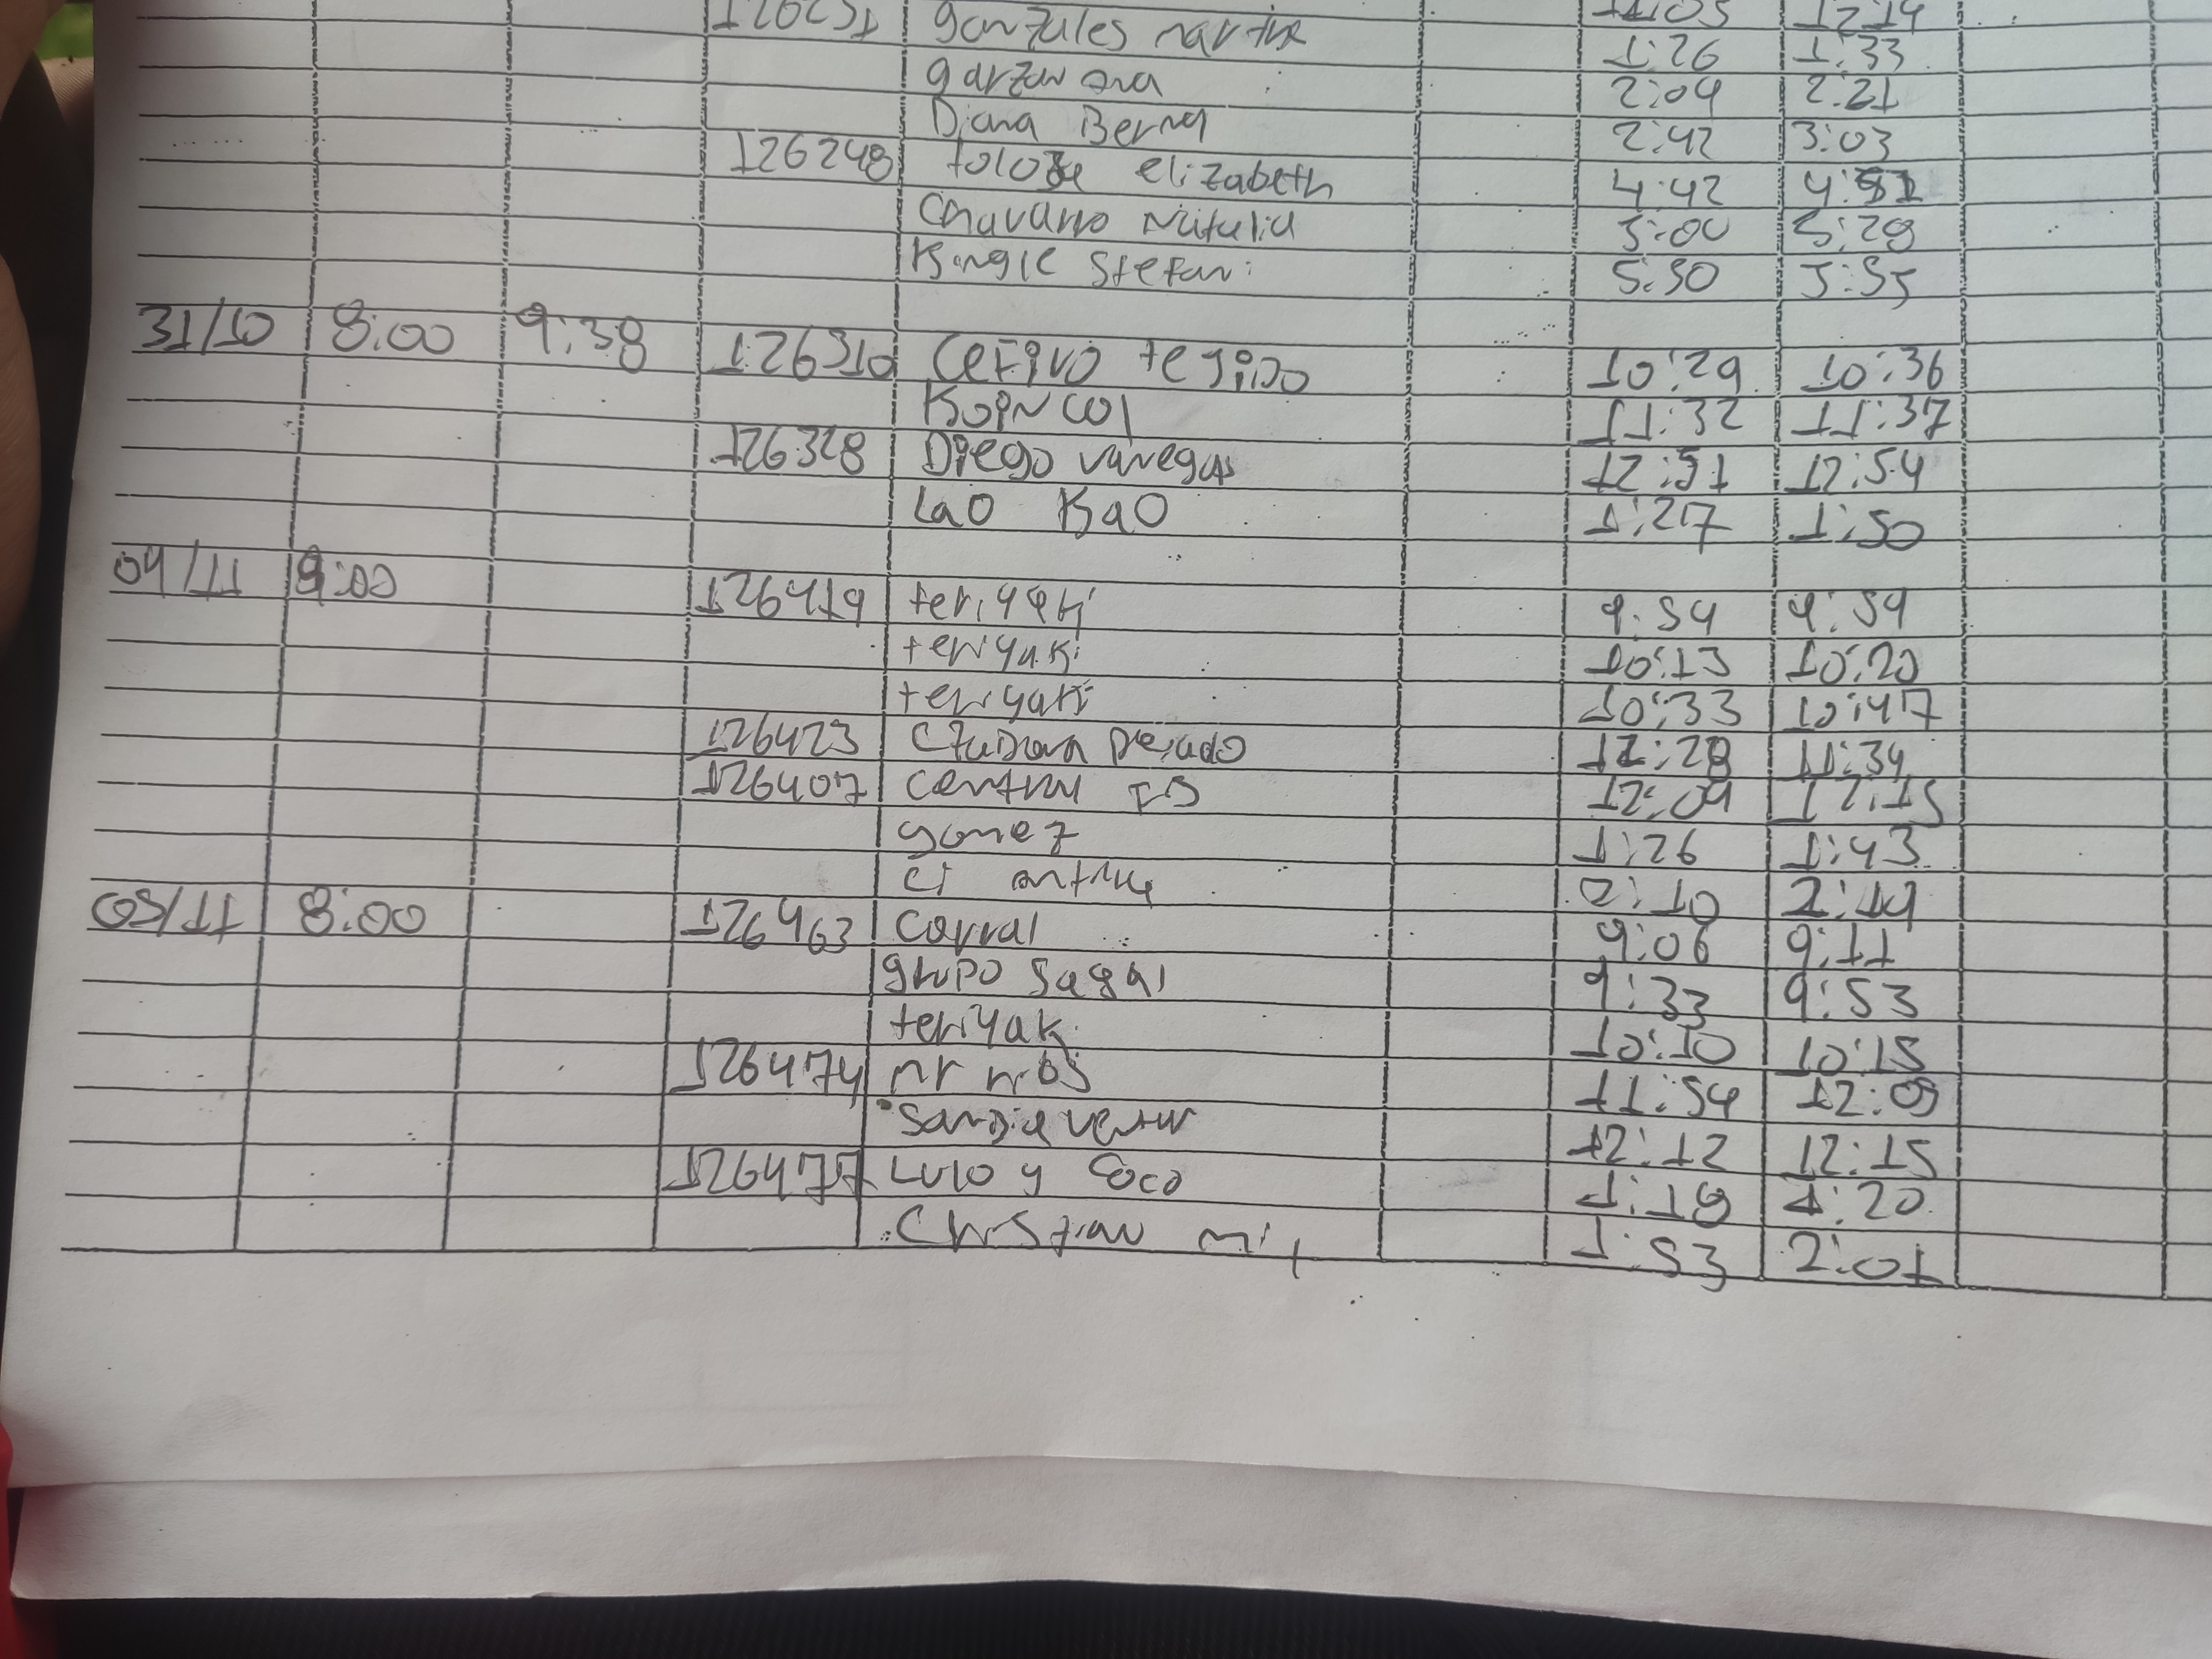 126251 gonzales martha 11:05 12:14
garzon ana 1:26 1:33
Diana Berna 2:04 2:21
126248 toloza elizabeth 2:42 3:03
Chavarro Natalia 4:42 4:51
Kingle Stefani 5:00 5:28
5:30 5:35
31/10 8:00 9:38 126310 Cefivo tegido 10:29 10:36
KOIN COl 11:32 11:37
126328 Diego vanegas 12:51 12:54
Lao Kao 1:27 1:50
04/11 9:00 126419 teriyaki 9:54 9:59
teriyaki 10:13 10:20
teriyaki 10:33 10:47
126423 11:28 11:34
126407 central 12:09 12:15
gomez 1:26 1:43
CI 2:10 2:19
05/11 8:00 126463 Corral 9:06 9:11
grupo Sagal 9:33 9:53
teriyaki 10:10 10:15
126474 mr ribs 11:54 12:09
Sandia 12:12 12:15
126477 Lulo y Coco 1:18 1:20
Christian 1:53 2:01